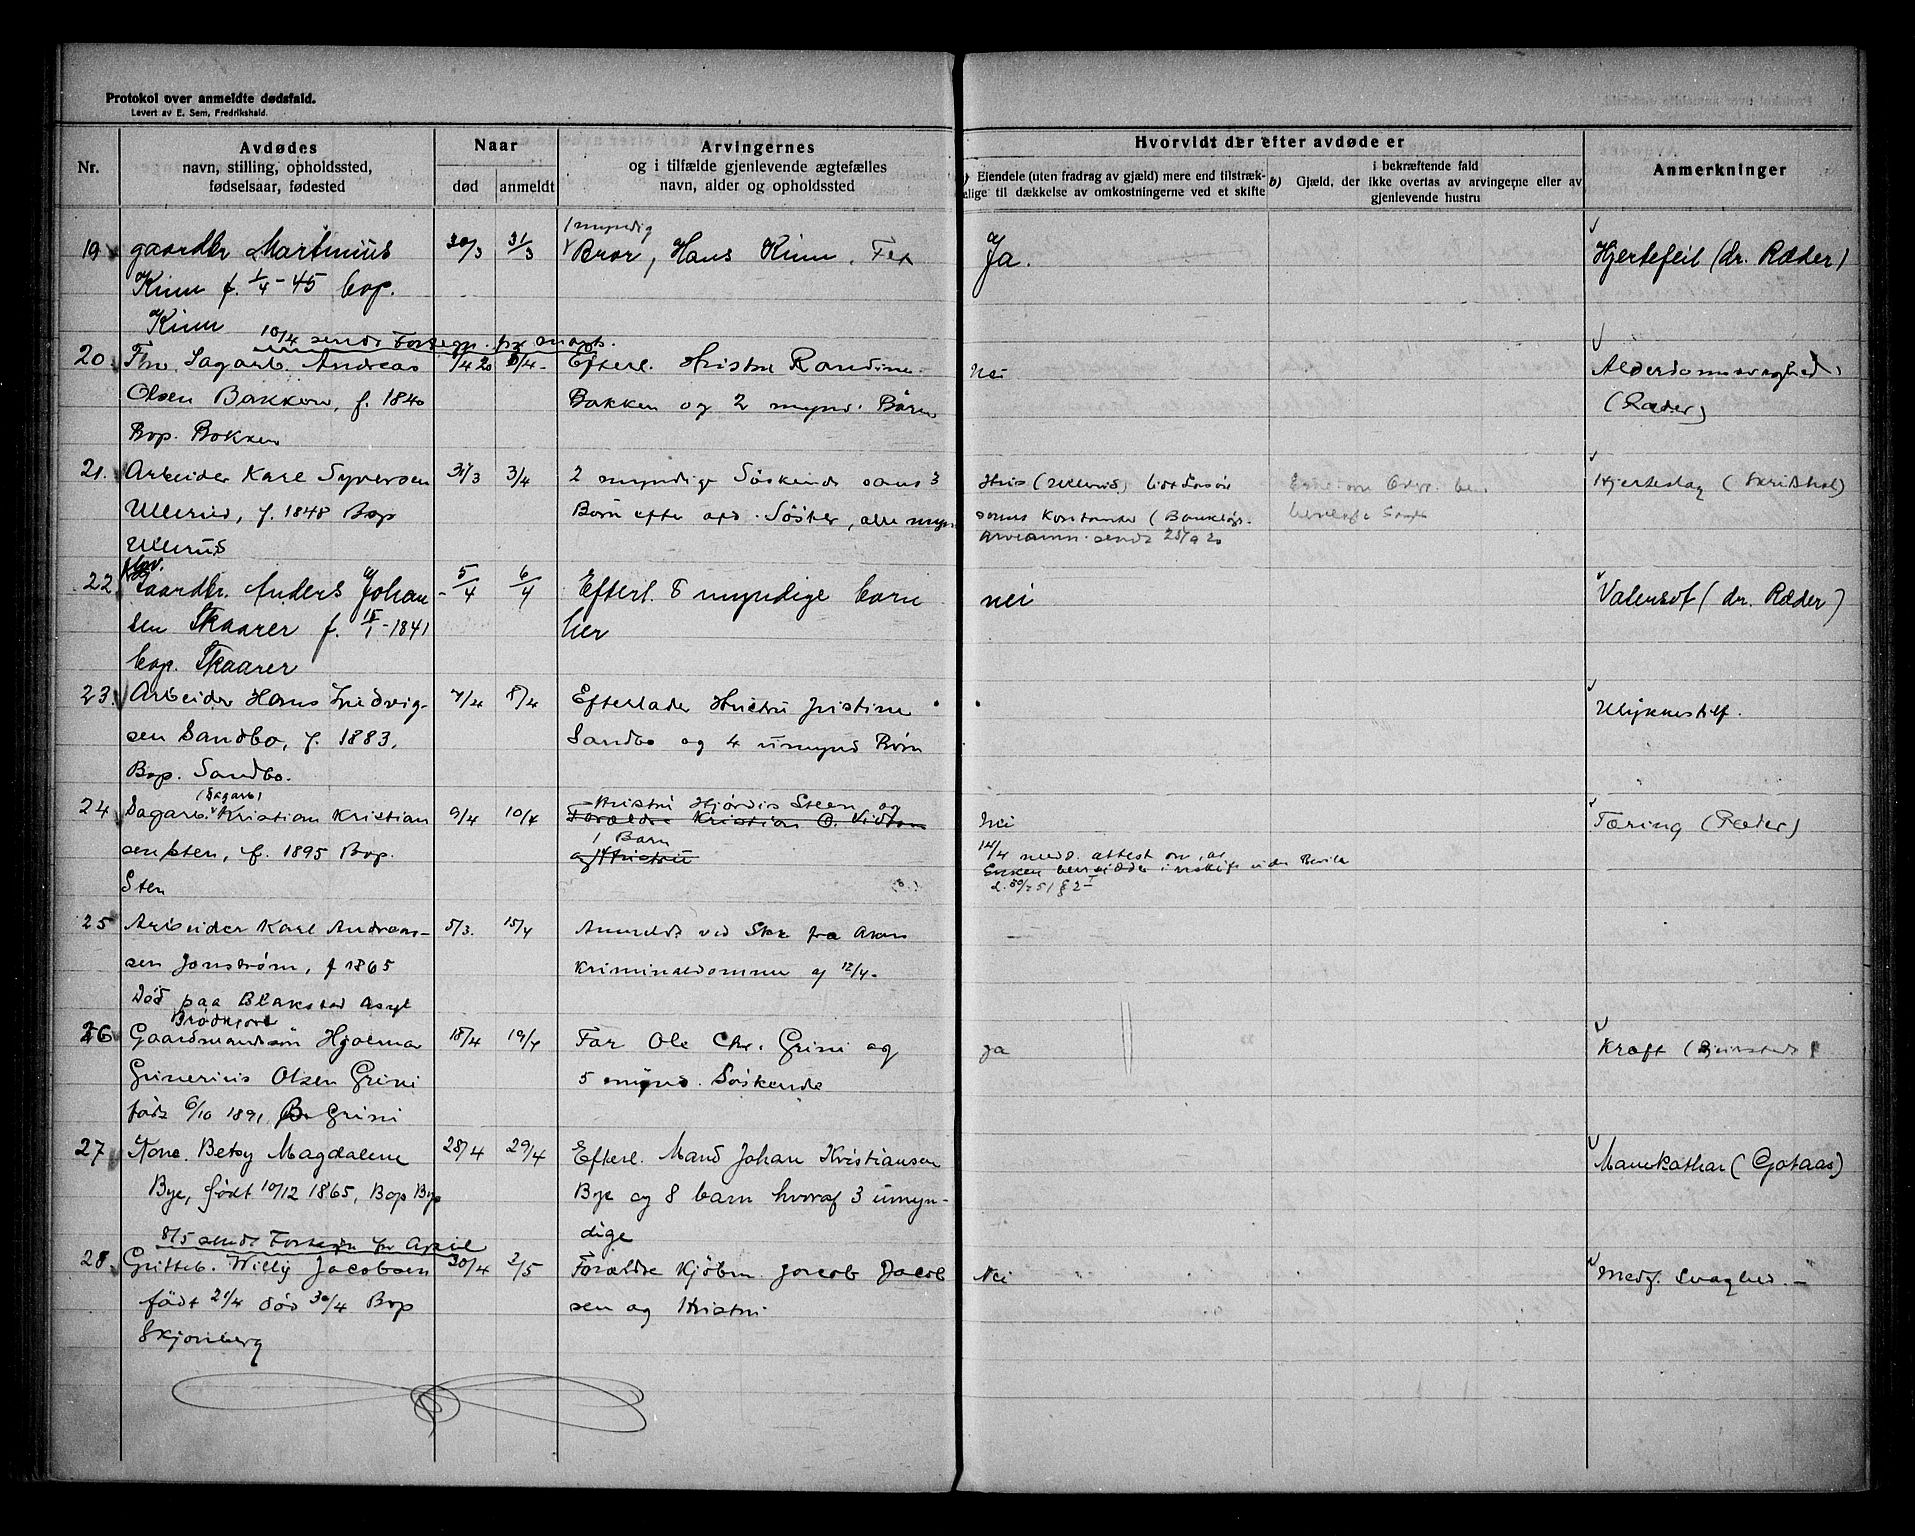 Protokol over anmeldte dødsfald.
Levert av E. Sem, Fredrikshald.
Nr.
Avdødes
navn, stilling, opholdssted,
fødselsaar, fødested
Naar
død
anmeldt
Arvingernes
og i tilfælde gjenlevende ægtefælles
navn, alder og opholdssted
Hvorvidt der efter avdøde er
Eiendele (uten fradrag av gjæld) mere end tilstræk-
kelige til dækkelse av omkostningerne ved et skifte
b) Gjæld, der
i bekræftende fald
ikke overtas av arvingerne eller av
gjenlevende hustru
Anmerkninger
19 gaardbr Martinius 30/3 31/3 1 myndig
Bror, Hans Kinn, Fet Ja. Hjertefeil (dr. Ræder)
Kinn f. 1/4-45 bop.
Kinn
10/4 sendt Fortegn. for marts.
20. Fhv. Sagarb. Andreas /4 20 /4- Efterl. Hustru Randine Nei Alderdomssvaghed
Olsen Bakken, f. 1840 Bakken og 2 mynd. Børn (Ræder)
Bop. Bakken
21. Arbeider Karl Syversen 31/3 3/4 2 myndige Søskende samt 3 Hus (Ullerud) Hjerteslag
Ullerud, f. 1848 Bop Børn efter afd. Søster, alle mynd
Kontanter (Bankbog
Ullerud sendt 25/9 20
22 Gaardbr. Anders Johan- 5/4 6/4 Efterl. 8 myndige barn nei (dr. Ræder)
sen Skaarer f. 15/1-1841 her
bop. Skaarer
23. Arbeider Hans Ludvig- 7/4 8/4 Efterlader Hustru Justine Ulykkestilf.
sen Sandbo, f. 1883, Sandbo og 4 umynd Børn
Bop. Sandbo.
(Dagarb)
24 Sagarb. Kristian Kristian 9/4 10/4 Hustru Hjørdis Steen og Nei Tæring (Ræder)
Forældre Kristian O.
sen Sten, f. 1895 Bop. 1 Barn
og Hustru
14/4 medd. attest om, at
Enken i uskifte
Sten
25 Arbeider Karl Andreas- 5/3. 15/4 Anmeldt ved Skr fra Akers
sen Jonstrøm, f 1865 Kriminaldommer af 12/4.
Død paa Blakstad Asyl
26 Gaardmandssøn Hjalmar 18/4 19/4 Far Ole Chr. Grini og ja Kræft
Grinerius Olsen Grini 5 mynd. Søskende
født 6/10 1891, Grini
27 Kone. Betsy Magdalene 28/4 29/4 Efterl. Mand Johan Kristiansen Mavekathar (Gotaas)
Bye, født 10/12 1865, Bop Bye Bye og 8 barn hvoraf 3 umyn-
dige
8/5 sendt Fortegn for April
28. Gutteb. Willy Jacobsen 30/4 2/5 Forældre Kjøbm. Jacob Jacob Nei Medf. Svaghed. -
født 21/4 død 30/4 Bop sen og Hustru
Skjonberg